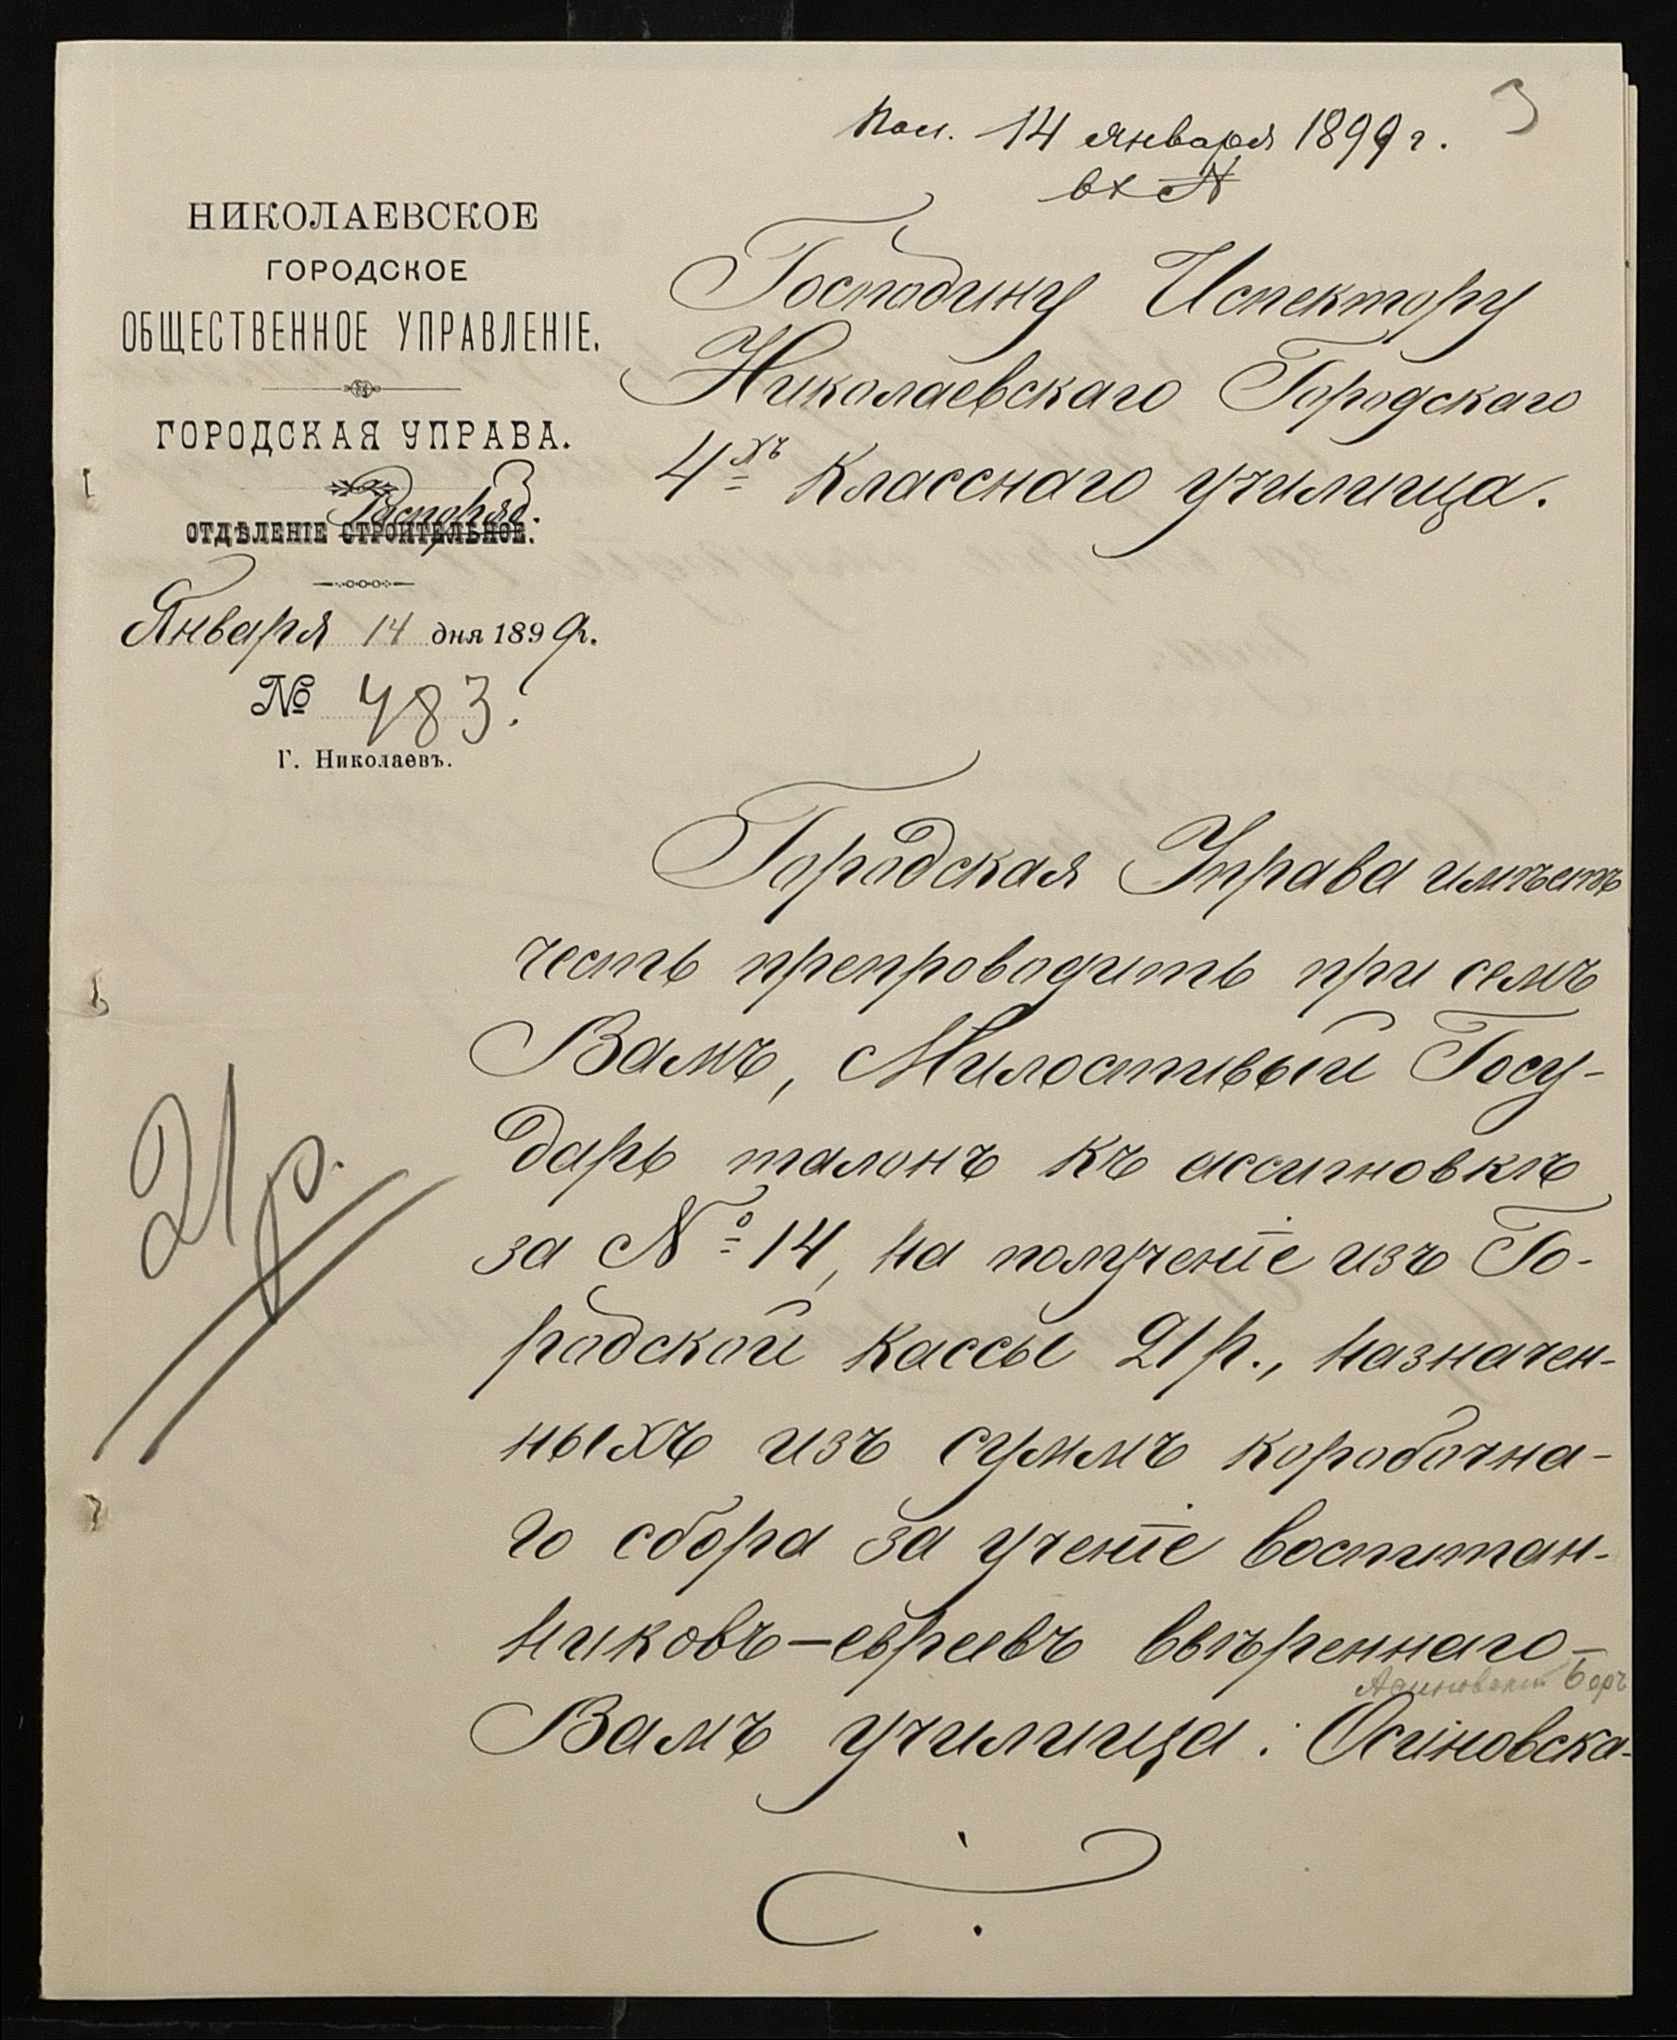 3
Пол. 14 января 1899 г.
вх №
НИКОЛАЕВСКОЕ
ГОРОДСКОЕ
ОБЩЕСТВЕННОЕ УПРАВЛЕНІЕ.
ГОРОДСКАЯ УПРАВА.
Распоряд.
ОТДѢЛЕНІЕ СТРОИТЕЛЬНОЕ.
Января 14 дня 1899 г.
№ 483.
Г. Николаевъ.
Господину Испектору
Николаевскаго Городскаго
4хъ класснаго училища.
Городская Управа имѣетъ
честь препроводить при семъ
Вамъ, Милостивый Госу-
дарь талонъ къ ассигновкѣ
за № 14, на полученіе изъ Го-
родской кассы 21 р., назначен-
ныхъ изъ суммъ коробочна-
го сбора за ученіе воспитан-
никовъ-евреевъ ввѣреннаго-
Вамъ училища: Осиновска-
21 р.